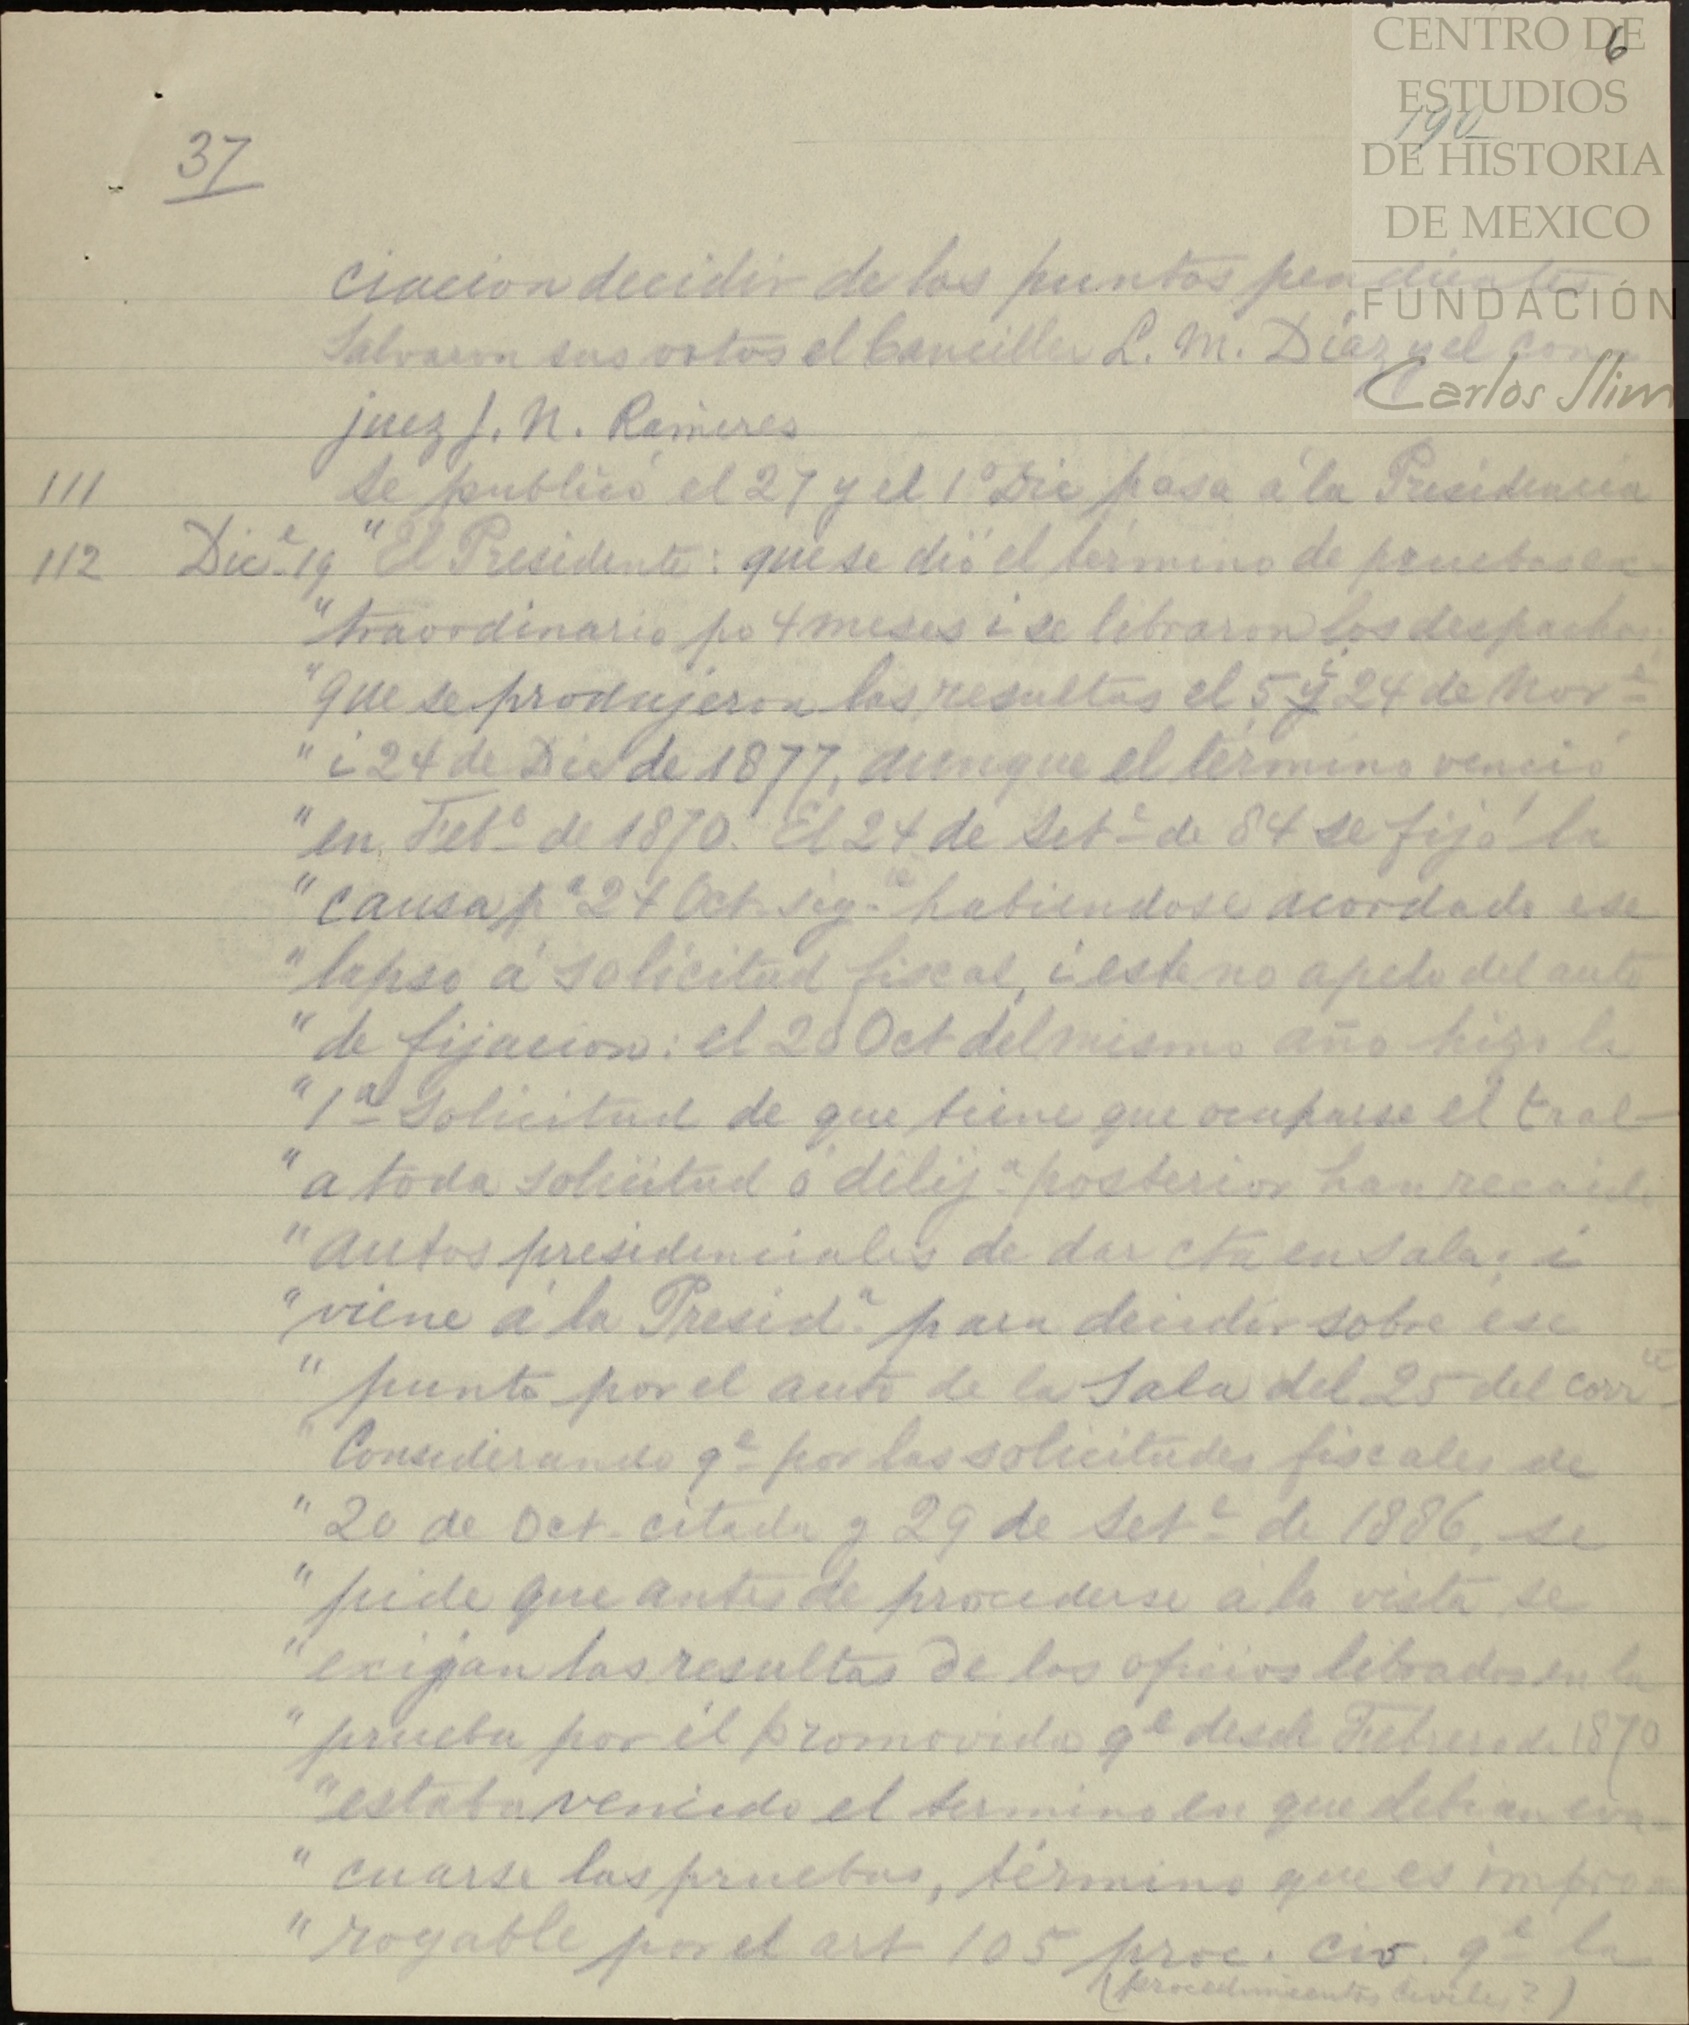 CENTRO DE
ESTUDIOS
DE HISTORIA
DE MEXICO
FUNDACIÓN
Carlos Slim
6
190
37
ciacion decidir de los puntos pendientes
Salvaron sus votos el Canciller L. M. Díaz y el con
juez J. N. Ramires
111 Se publicó el 27 y el 1º Dic pasa á la Presidencia
112 Dicᵉ 19 " El Presidente: que se dió el término de pruebas ex-
" traordinario po 4 meses i se libraron los despachos
" que se produjeron las resultas el 5 i 24 de Novᵉ
" i 24 de Dic de 1877, aunque el término venció
" en Febᵒ de 1870. El 24 de Setᵉ de 84 se fijó la
" causa pᵃ 24 Oct. sigᵗᵉ habiendose acordado ese
" lapso á solicitud fiscal, i este no apeló del auto
" de fijacion: el 20 Oct del mismo año hizo la
" 1ª solicitud de que tiene que ocuparse el tral-
" a toda solicitud ó dilijᵃ posterior han recaido
" autos presidenciales de dar cta en sala; i
" viene á la Presidᵃ para decidir sobre ese
" punto por el auto de la Sala del 25 del corrᵗᵉ
" Considerando qᵉ por las solicitudes fiscales de
" 20 de Oct. citada y 29 de Setᵉ de 1886, se
" pide que antes de procederse á la vista se
" exijan las resultas de los oficios librados en la
" prueba por él promovida qᵉ desde Febrero de 1870
" estaba vencido el termino en que debian eva-
" cuarse las pruebas, término que es impro-
" rogable por el art 105 proc. civ. qᵉ la
(procedimientos civiles?)